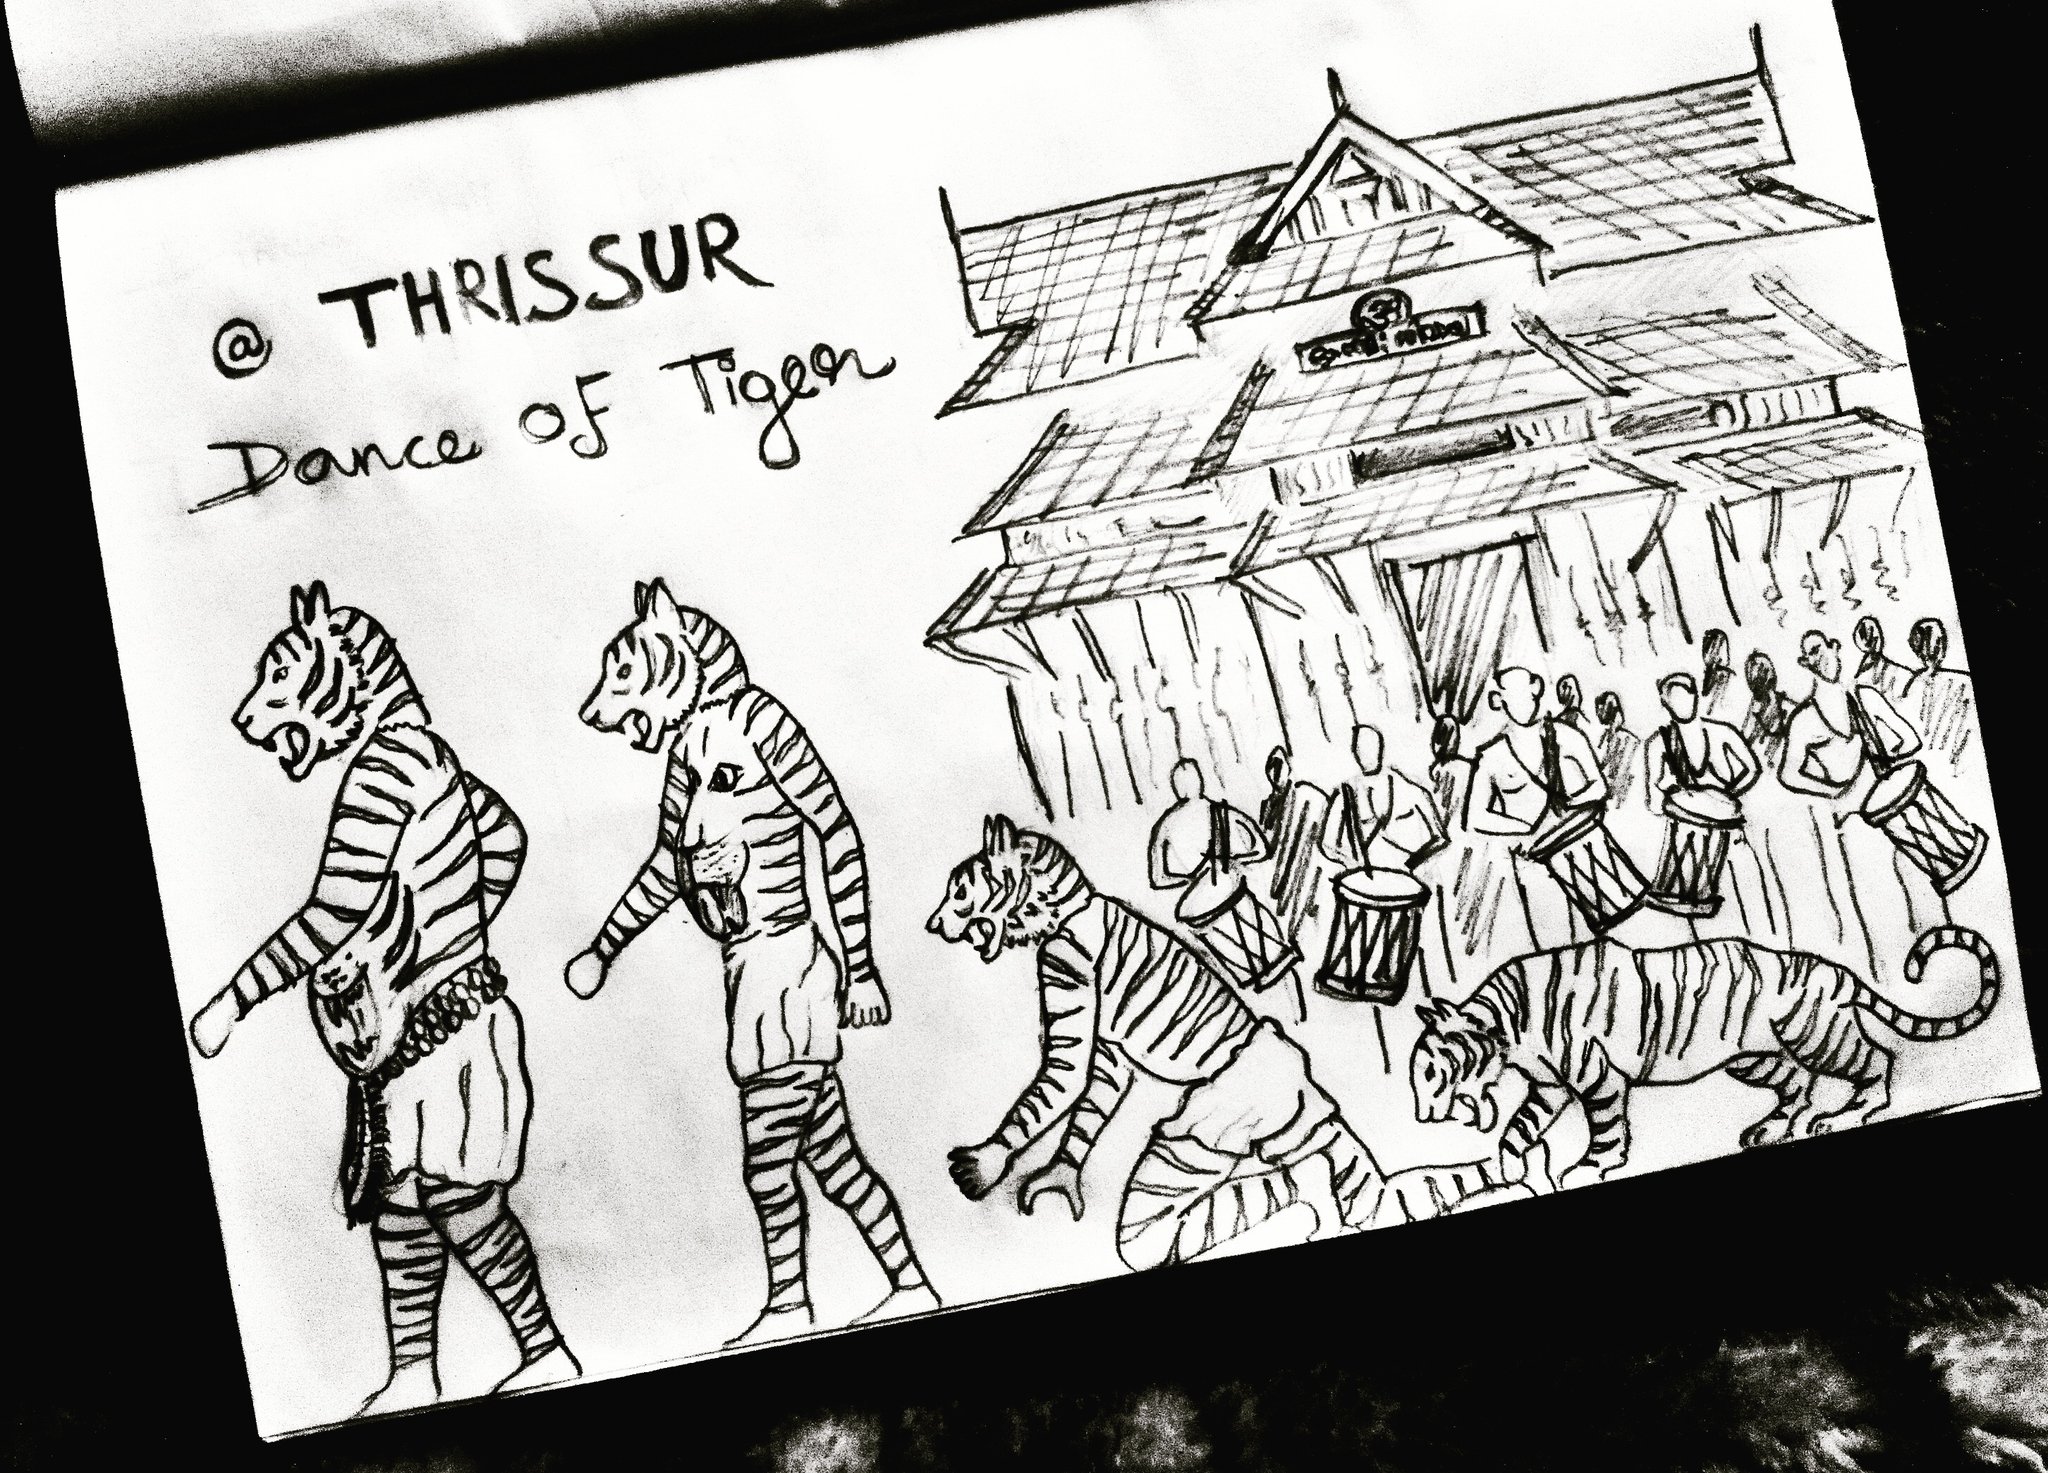 @ THRISSUR
Dance of Tiger